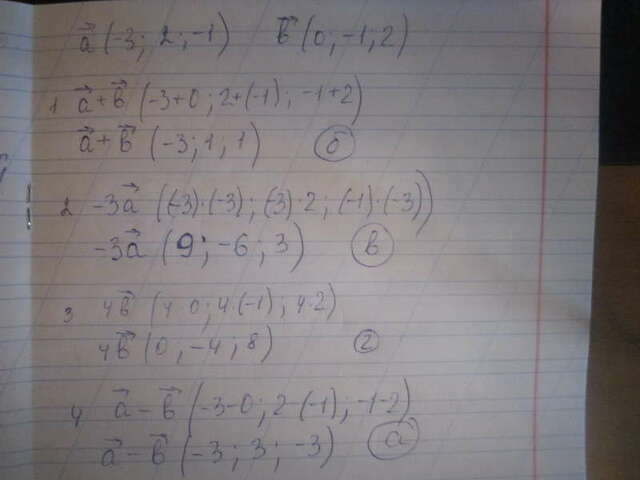 a⃗ (-3; 2; -1) b⃗ (0; -1; 2)
1 a⃗+b⃗ (-3+0; 2+(-1); -1+2)
a⃗+b⃗ (-3; 1; 1) б
2 -3a⃗ ((-3)·(-3); (-3)·2; (-1)·(-3))
-3a⃗ (9; -6; 3) в
3 4b⃗ (4·0; 4(-1); 4·2)
4b⃗ (0; -4; 8) г
4 a⃗-b⃗ (-3-0; 2-(-1); -1-2)
a⃗-b⃗ (-3; 3; -3) а